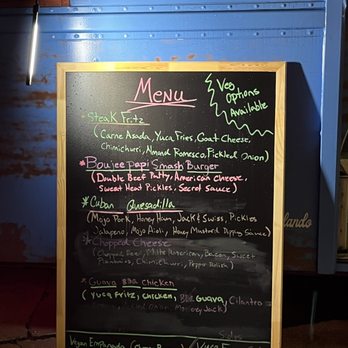 Menu
Veg
Options
Available
Steak Fritz
(Carne Asada, Yuca Fries, Goat Cheese,
Chimichuri, Almond Romesco, Pickled Onion)
*Boujee papi Smash Burger
(Double Beef Patty, American Cheese,
Sweet Heat Pickles, Secret Sauce)
*Cuban Quesadilla
(Mojo Pork, Honey Ham, Jack & Swiss, Pickles
Jalapeno, Mojo Aioli, Honey Mustard Dipping Sauce)
*Chopped Cheese
(Chopped Beef, White American, Bacon, Sweet
Chimichuri, Pepper Relish)
*Guava BBQ chicken
(Yuca Fritz, Chicken, BBQ Guava, Cilantro
Jack)
Vegan Empanada
lando